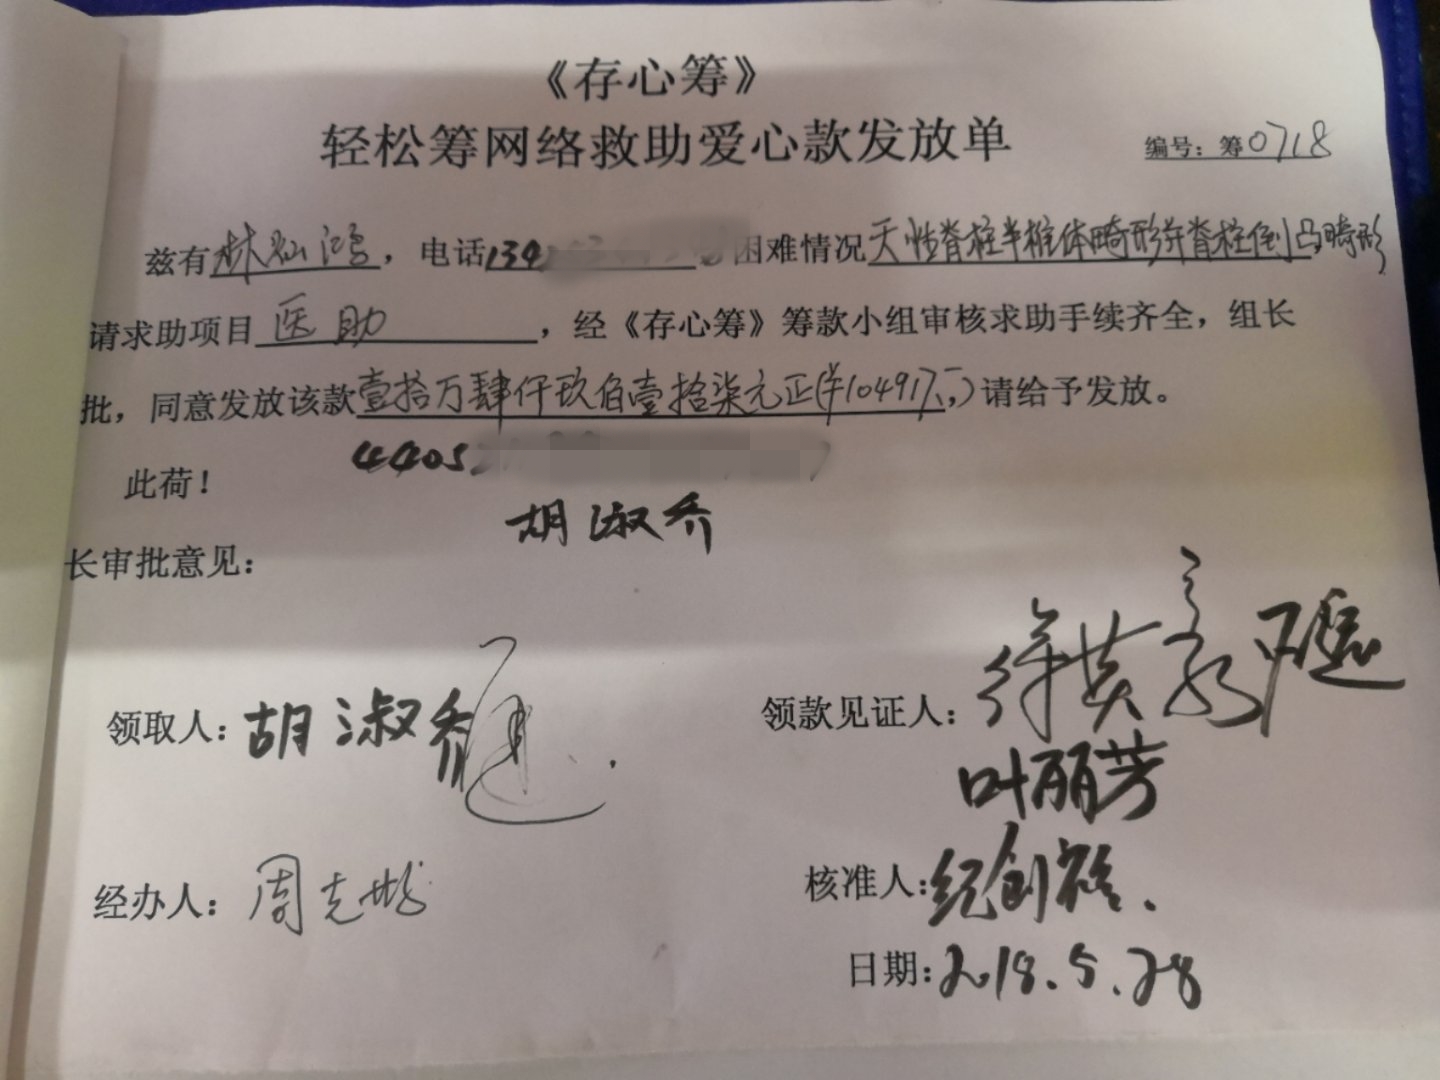 《存心筹》
轻松筹网络救助爱心款发放单
编号：筹0718
兹有林灿鸿，电话134 困难情况天性脊柱半椎体畸形并脊柱侧凸畸形
请求助项目医助，经《存心筹》筹款小组审核求助手续齐全，组长
批，同意发放该款壹拾万肆仟玖佰壹拾柒元正(￥104917元)请给予发放。
4405
此荷！
胡淑乔
长审批意见：
领取人：胡淑乔
领款见证人：
叶丽芳
经办人：周克
核准人：纪创
日期：2018.5.28